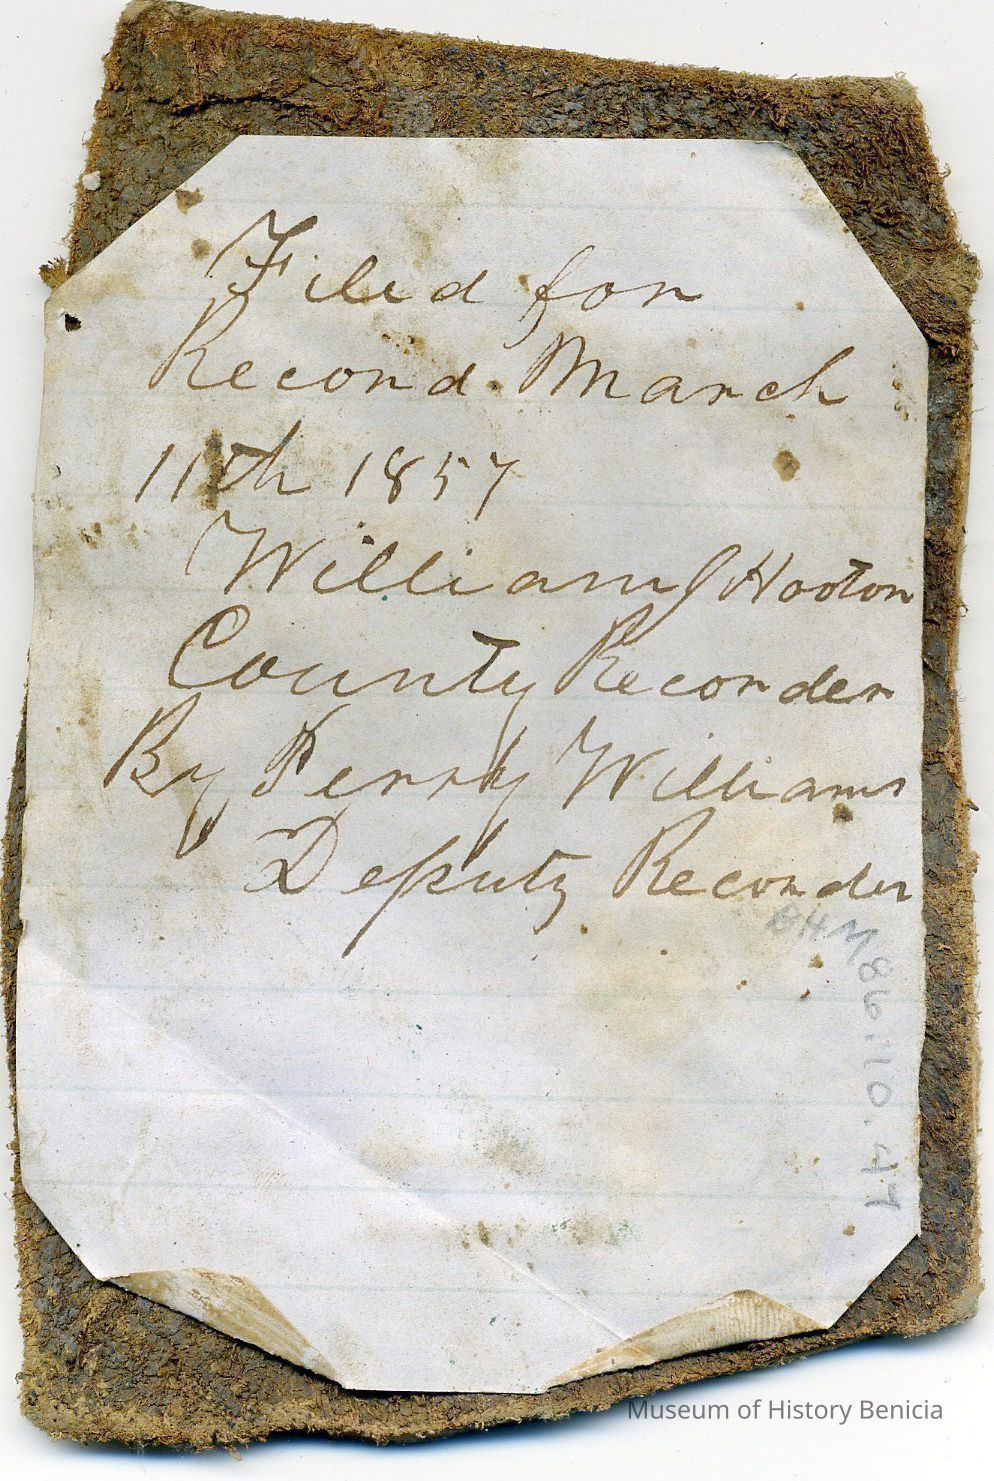 Filed for
Record March
11th 1857
William J Hooton
County Recorder
By Perry Williams
Deputy Recorder
BHM 86.10.47
Museum of History Benicia